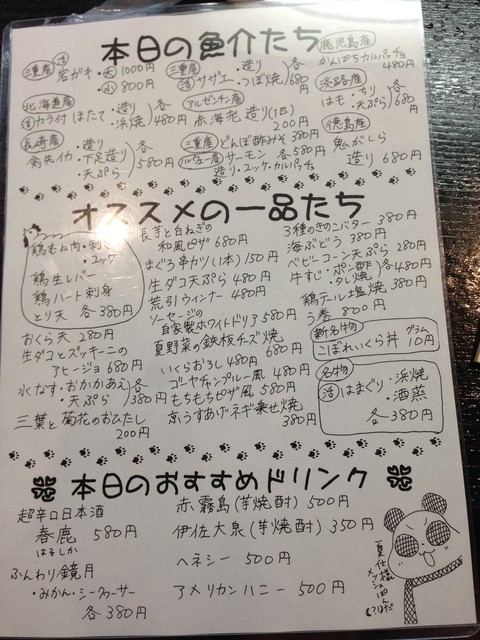 本日の魚介たち
三重産 活 岩ガキ・大 1000円
・小 800円
三重産 活 サザエ・造り
・つぼ焼 各680円
鹿児島産
かんぱちカルパッチョ 680円
北海道産
活 カラ付 ほたて・造り
・浜焼 各480円
アルゼンチン産
赤海老 造り(1匹)
200円
淡路産
はも・ちり
・天ぷら 各680円
長崎産
剣先イカ・造り
・下足造り
・天ぷら 各580円
三重産 どんぼ酢みそ 380円
ノルウェー産 サーモン 各580円
造り・ユッケ・カルパッチョ
徳島産
鬼がしら
造り 680円
オススメの一品たち
鶏むね肉・刺身
・ユッケ
鶏生レバー
鶏ハート刺身
とり天 各380円
おくら天 280円
生ダコとズッキーニの
アヒージョ 680円
水なす・おかかあえ
・天ぷら 各380円
三葉と菊花のおひたし
200円
長芋と白ねぎの
和風ピザ 680円
まぐろ串カツ(1本) 150円
生ダコ天ぷら 480円
荒引ウィンナー 480円
ソーセージの
自家製ホワイトドリア 580円
夏野菜の鉄板チーズ焼
680円
いくらおろし 480円
ゴーヤチャンプルー風 480円
もちもちピザ風 580円
京うすあげ・ネギ乗せ焼
380円
3種のきのこバター 380円
海ぶどう 380円
ベビーコーン天ぷら 280円
牛すじ・ポン酢
・タレ焼 各480円
鶏テール塩焼 380円
う巻 800円
新名物
こぼれいくら丼 グラム10円
名物
活 はまぐり・浜焼
・酒蒸
各380円
本日のおすすめドリンク
超辛口日本酒
春鹿 580円
はるしか
ふんわり鏡月
・みかん・シークァーサー
各380円
赤霧島(芋焼酎) 500円
伊佐大泉(芋焼酎) 350円
ヘネシー 500円
アメリカンハニー 500円
夏仕様
メッシュぱんだ